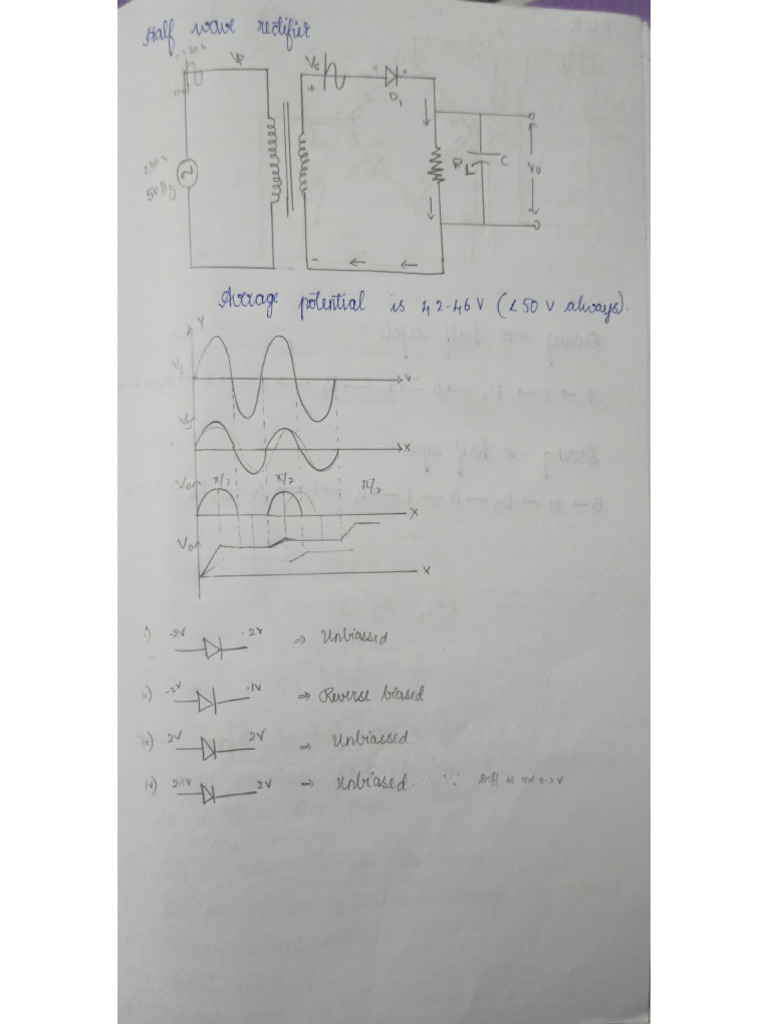 Half wave rectifier
Vp
Vs
+
D1
230 V
50 Hz
RL
C
Vo
-
Average potential is 42.46 V (<50 V always).
Y
X
X
Vo
π/2 π/2 π/2
X
Vo
X
i) -2V -2V ⇒ Unbiassed
ii) -2V -1V ⇒ Reverse biased
iii) 2V 2V ⇒ Unbiassed
iv) 2V → Unbiased ∵ Diff is not